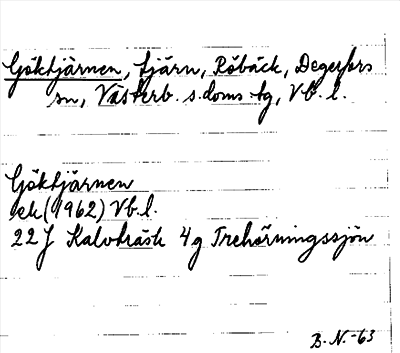 Göktjärnen, tjärn, Röbäck, Degerfors
sn, Västerb. s.doms tg, Vb. l.
Göktjärnen
ek (1962) Vb.l.
22 J Kalvträsk 4g Trehörningssjön
B.N.-63